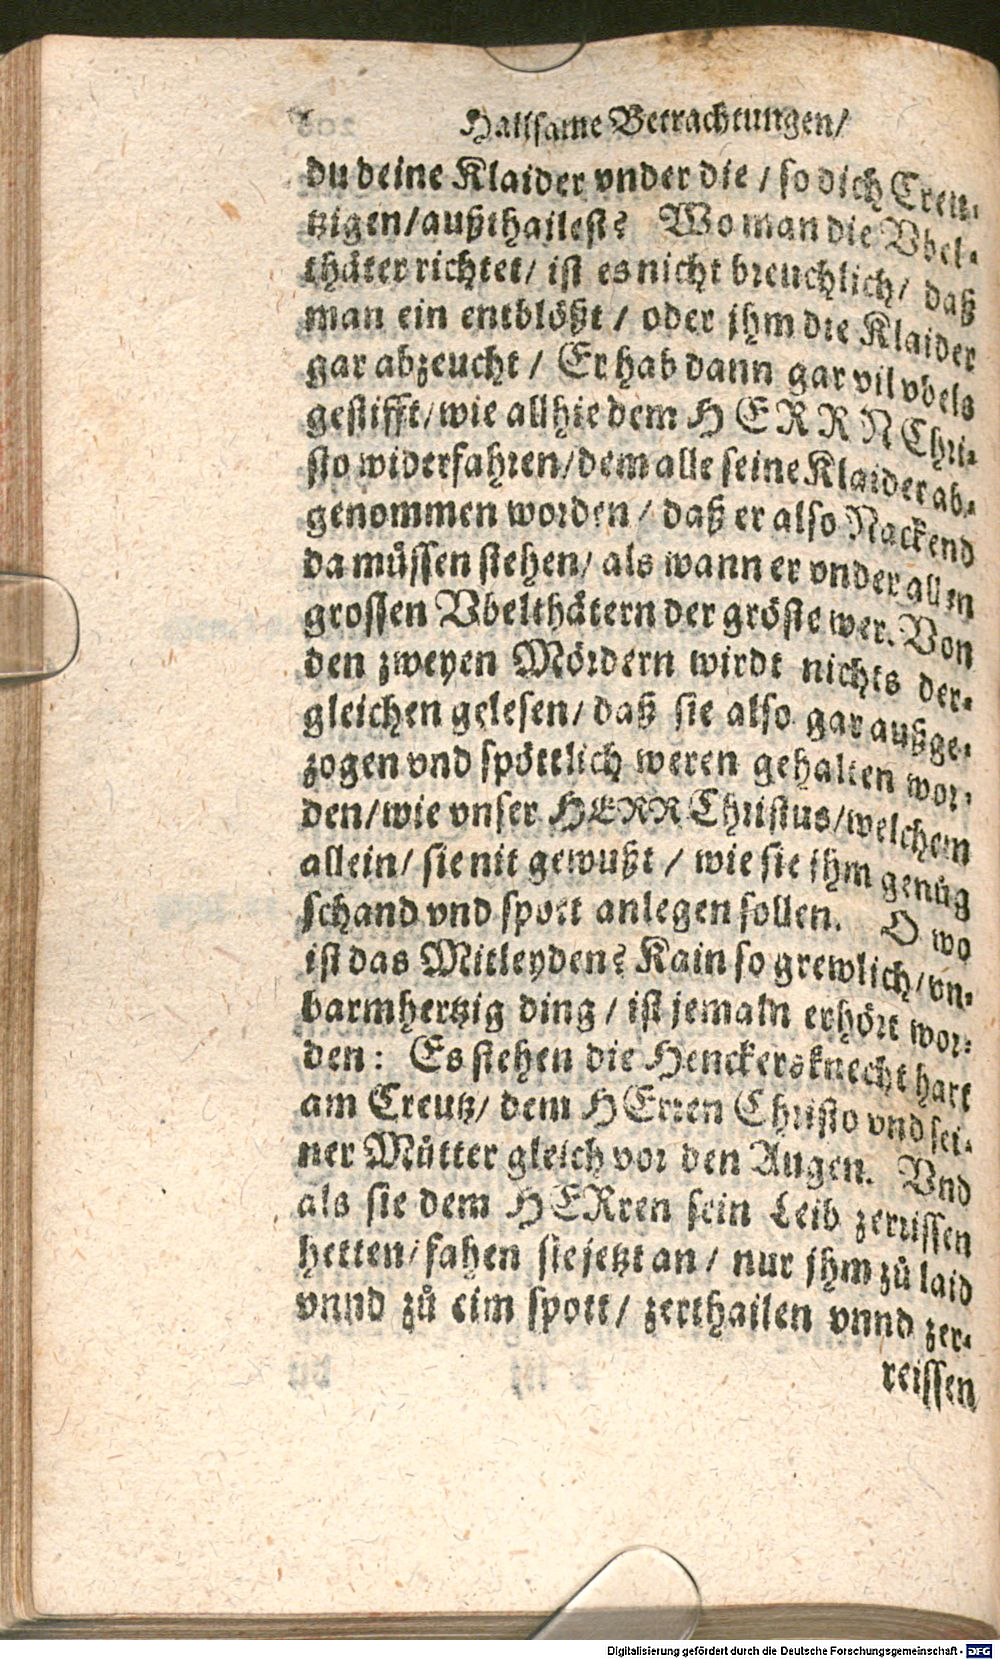 Hailsame Betrachtungen/
du deine Klaider vnder die / so dich Creu-
tzigen/außthailest? Wo man die Vbel-
thäter richtet/ ist es nicht breuchlich/ daß
man ein entblößt / oder jhm die Klaider
gar abzeucht / Er hab dann gar vil vbels
gestifft/wie allhie dem HERRN Chri-
sto widerfahren/dem alle seine Klaider ab-
genommen worden / daß er also Nackend
da müssen stehen/ als wann er vnder allen
grossen Vbelthätern der gröste wer. Von
den zweyen Mördern wirdt nichts der-
gleichen gelesen/ daß sie also gar außge-
zogen vnd spöttlich weren gehalten wor-
den/wie vnser HERR Christus/welchem
allein/ sie nit gewußt / wie sie jhm genůg
schand vnd spott anlegen sollen. O wo
ist das Mitleyden? Kain so grewlich/vn-
barmhertzig ding / ist jemaln erhört wor-
den: Es stehen die Henckersknecht hart
am Creutz/ dem HErren Christo vnd sei-
ner Můtter gleich vor den Augen. Vnd
als sie dem HERren sein Leib zerrissen
hetten/fahen sie jetzt an / nur jhm zů laid
vnnd zů eim spott/ zerthailen vnnd zer-
reissen
Digitalisierung gefördert durch die Deutsche Forschungsgemeinschaft - DFG